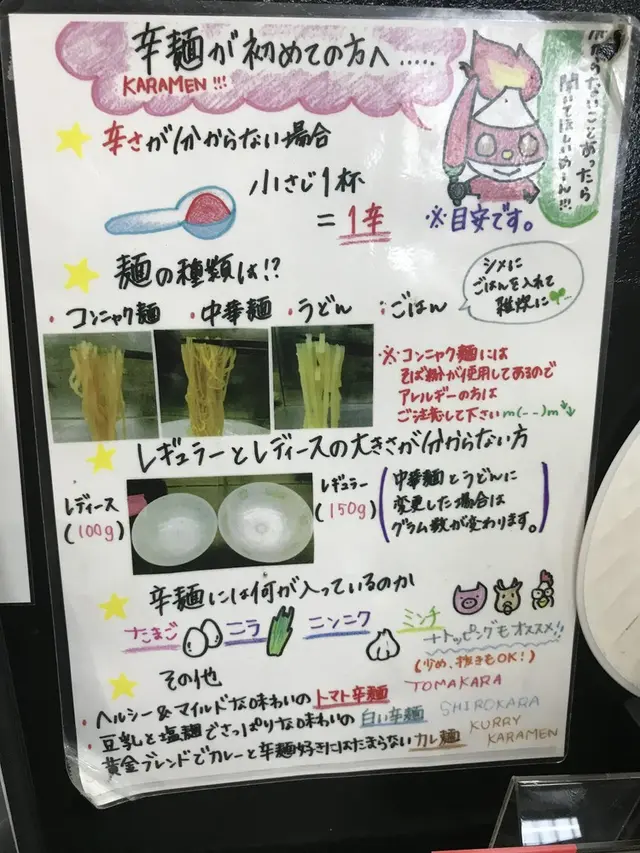 辛麺が初めての方へ.....
KARAMEN!!!
わからないことあったら
聞いてほしいめーん!!!
辛さが分からない場合
小さじ1杯
=1辛
※目安です。
麺の種類は!?
・コンニャク麺
・中華麺
・うどん
・ごはん
シメに
ごはんを入れて
雑炊に
※コンニャク麺には
そば粉が使用してあるので
アレルギーの方は
ご注意して下さいm(--)m
レギュラーとレディースの大きさが分からない方
レディース
(100g)
レギュラー
(150g)
(中華麺とうどんに
変更した場合は
グラム数が変わります。)
辛麺には何が入っているのか
たまご
ニラ
ニンニク
ミンチ
+トッピングもオススメ!!
(少め、抜きもOK!)
その他
・ヘルシー&マイルドな味わいのトマト辛麺
TOMAKARA
・豆乳と塩麹でさっぱりな味わいの白い辛麺
SHIROKARA
・黄金ブレンドでカレーと辛麺好きにはたまらないカレ麺
KURRY
KARAMEN